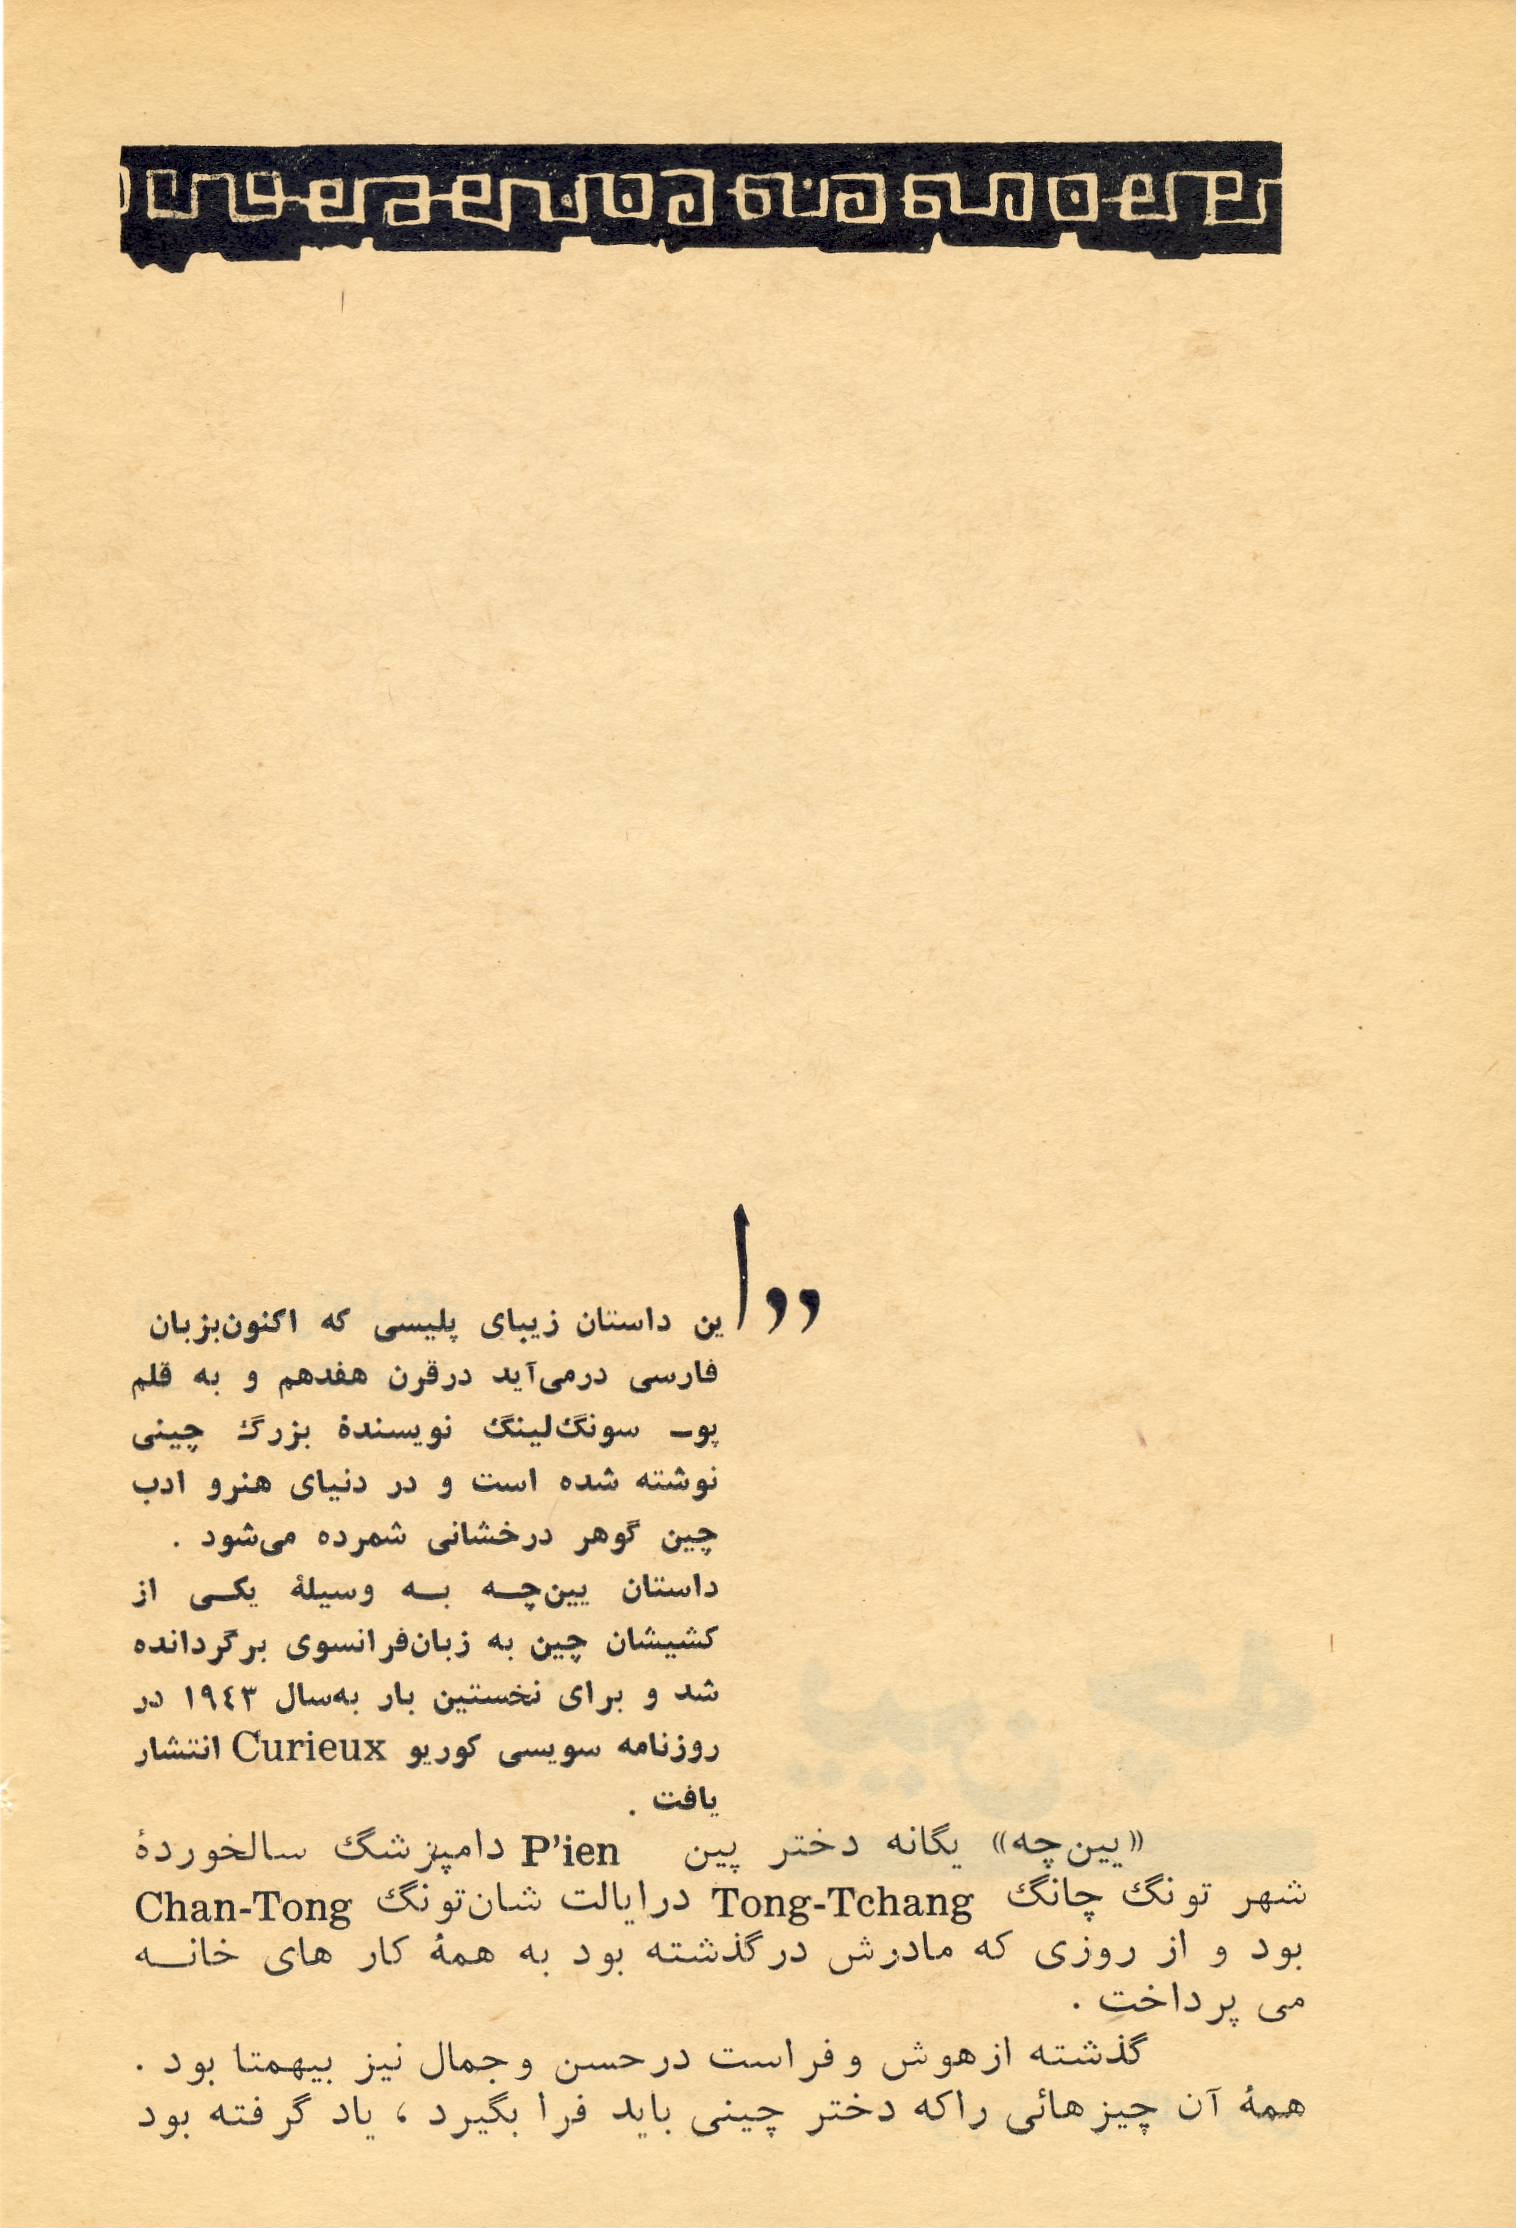 ,,این داستان زیبای پلیسی که اکنون‌بزبان
فارسی درمی‌آید درقرن هفدهم و به قلم
پو- سونگ‌لینگ نویسندهٔ بزرگ چینی
نوشته شده است و در دنیای هنرو ادب
چین گوهر درخشانی شمرده می‌شود .
داستان یین‌چه به وسیلهٔ یکی از
کشیشان چین به زبان‌فرانسوی برگردانده
شد و برای نخستین بار به‌سال ۱۹٤۳ در
روزنامه سویسی کوریو Curieux انتشار
یافت .
«یین‌چه» یگانه دختر پین P'ien دامپزشگ سالخوردهٔ
شهر تونگ چانگ Tong-Tchang درایالت شان‌تونگ Chan-Tong
بود و از روزی که مادرش درگذشته بود به همهٔ کار های خانه
می پرداخت .
گذشته ازهوش وفراست درحسن وجمال نیز بیهمتا بود .
همهٔ آن چیزهائی راکه دختر چینی باید فرا بگیرد ، یاد گرفته بود